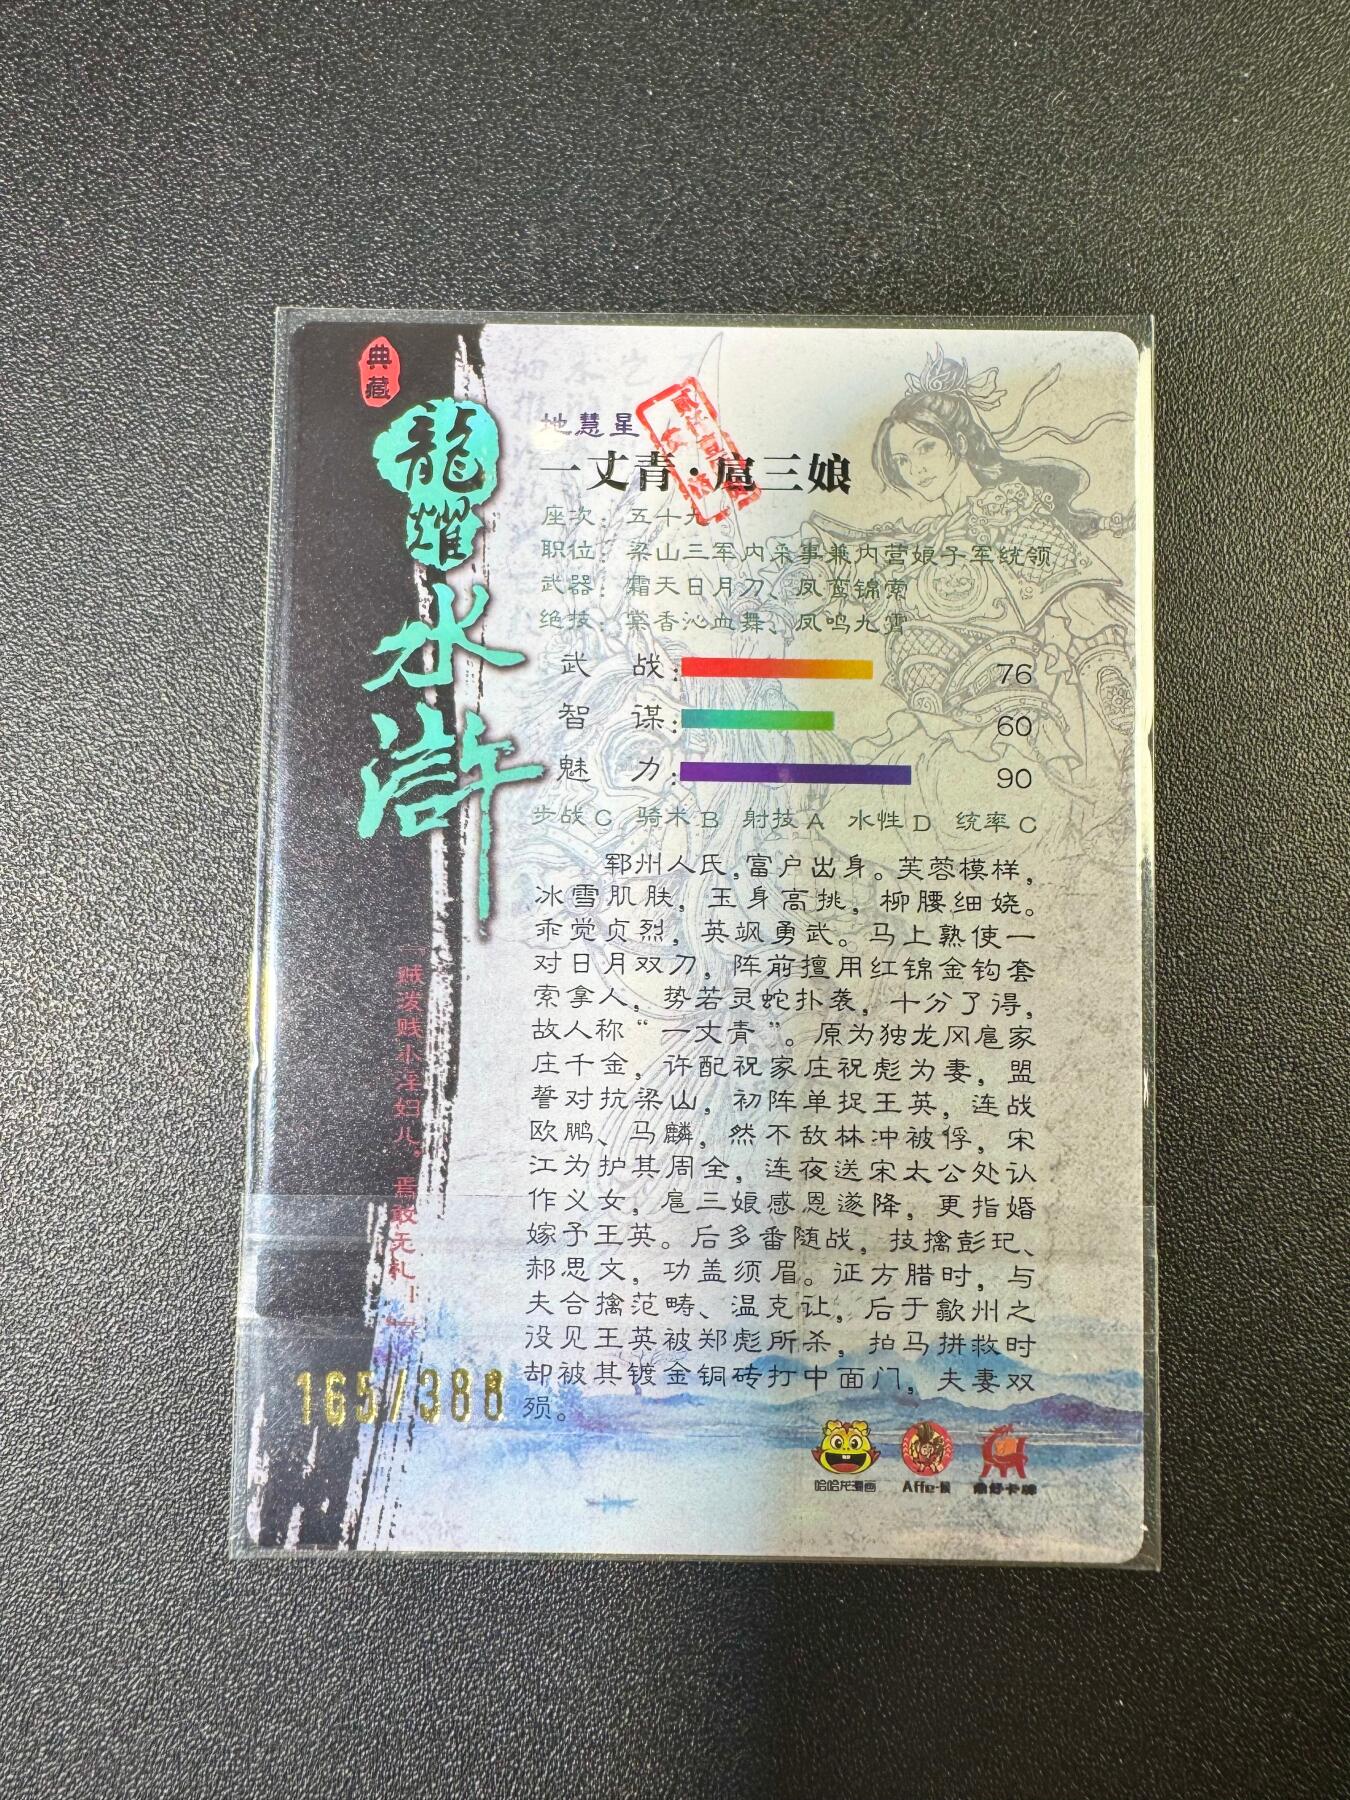 典藏
龍耀
水滸
地慧星
一丈青·扈三娘
座次：五十九
职位：梁山三军内采事兼内营娘子军统领
武器：霜天日月刀、凤鸾锦索
绝技：棠香沁血舞、凤鸣九霄
武 战： 76
智 谋： 60
魅 力： 90
步战C 骑术B 射技A 水性D 统率C
郓州人氏，富户出身。芙蓉模样，
冰雪肌肤，玉身高挑，柳腰细娆。
乖觉贞烈，英飒勇武。马上熟使一
对日月双刀，阵前擅用红锦金钩套
索拿人，势若灵蛇扑袭，十分了得，
故人称“一丈青”。原为独龙冈扈家
庄千金，许配祝家庄祝彪为妻，盟
誓对抗梁山，初阵单捉王英，连战
欧鹏、马麟，然不敌林冲被俘，宋
江为护其周全，连夜送宋太公处认
作义女，扈三娘感恩遂降，更指婚
嫁予王英。后多番随战，技擒彭玘、
郝思文，功盖须眉。征方腊时，与
夫合擒范畴、温克让，后于歙州之
役见王英被郑彪所杀，拍马拼救时
却被其镀金铜砖打中面门，夫妻双
殒。
「贼泼贱小淫妇儿，焉敢无礼！」
165/388
哈哈龙漫画